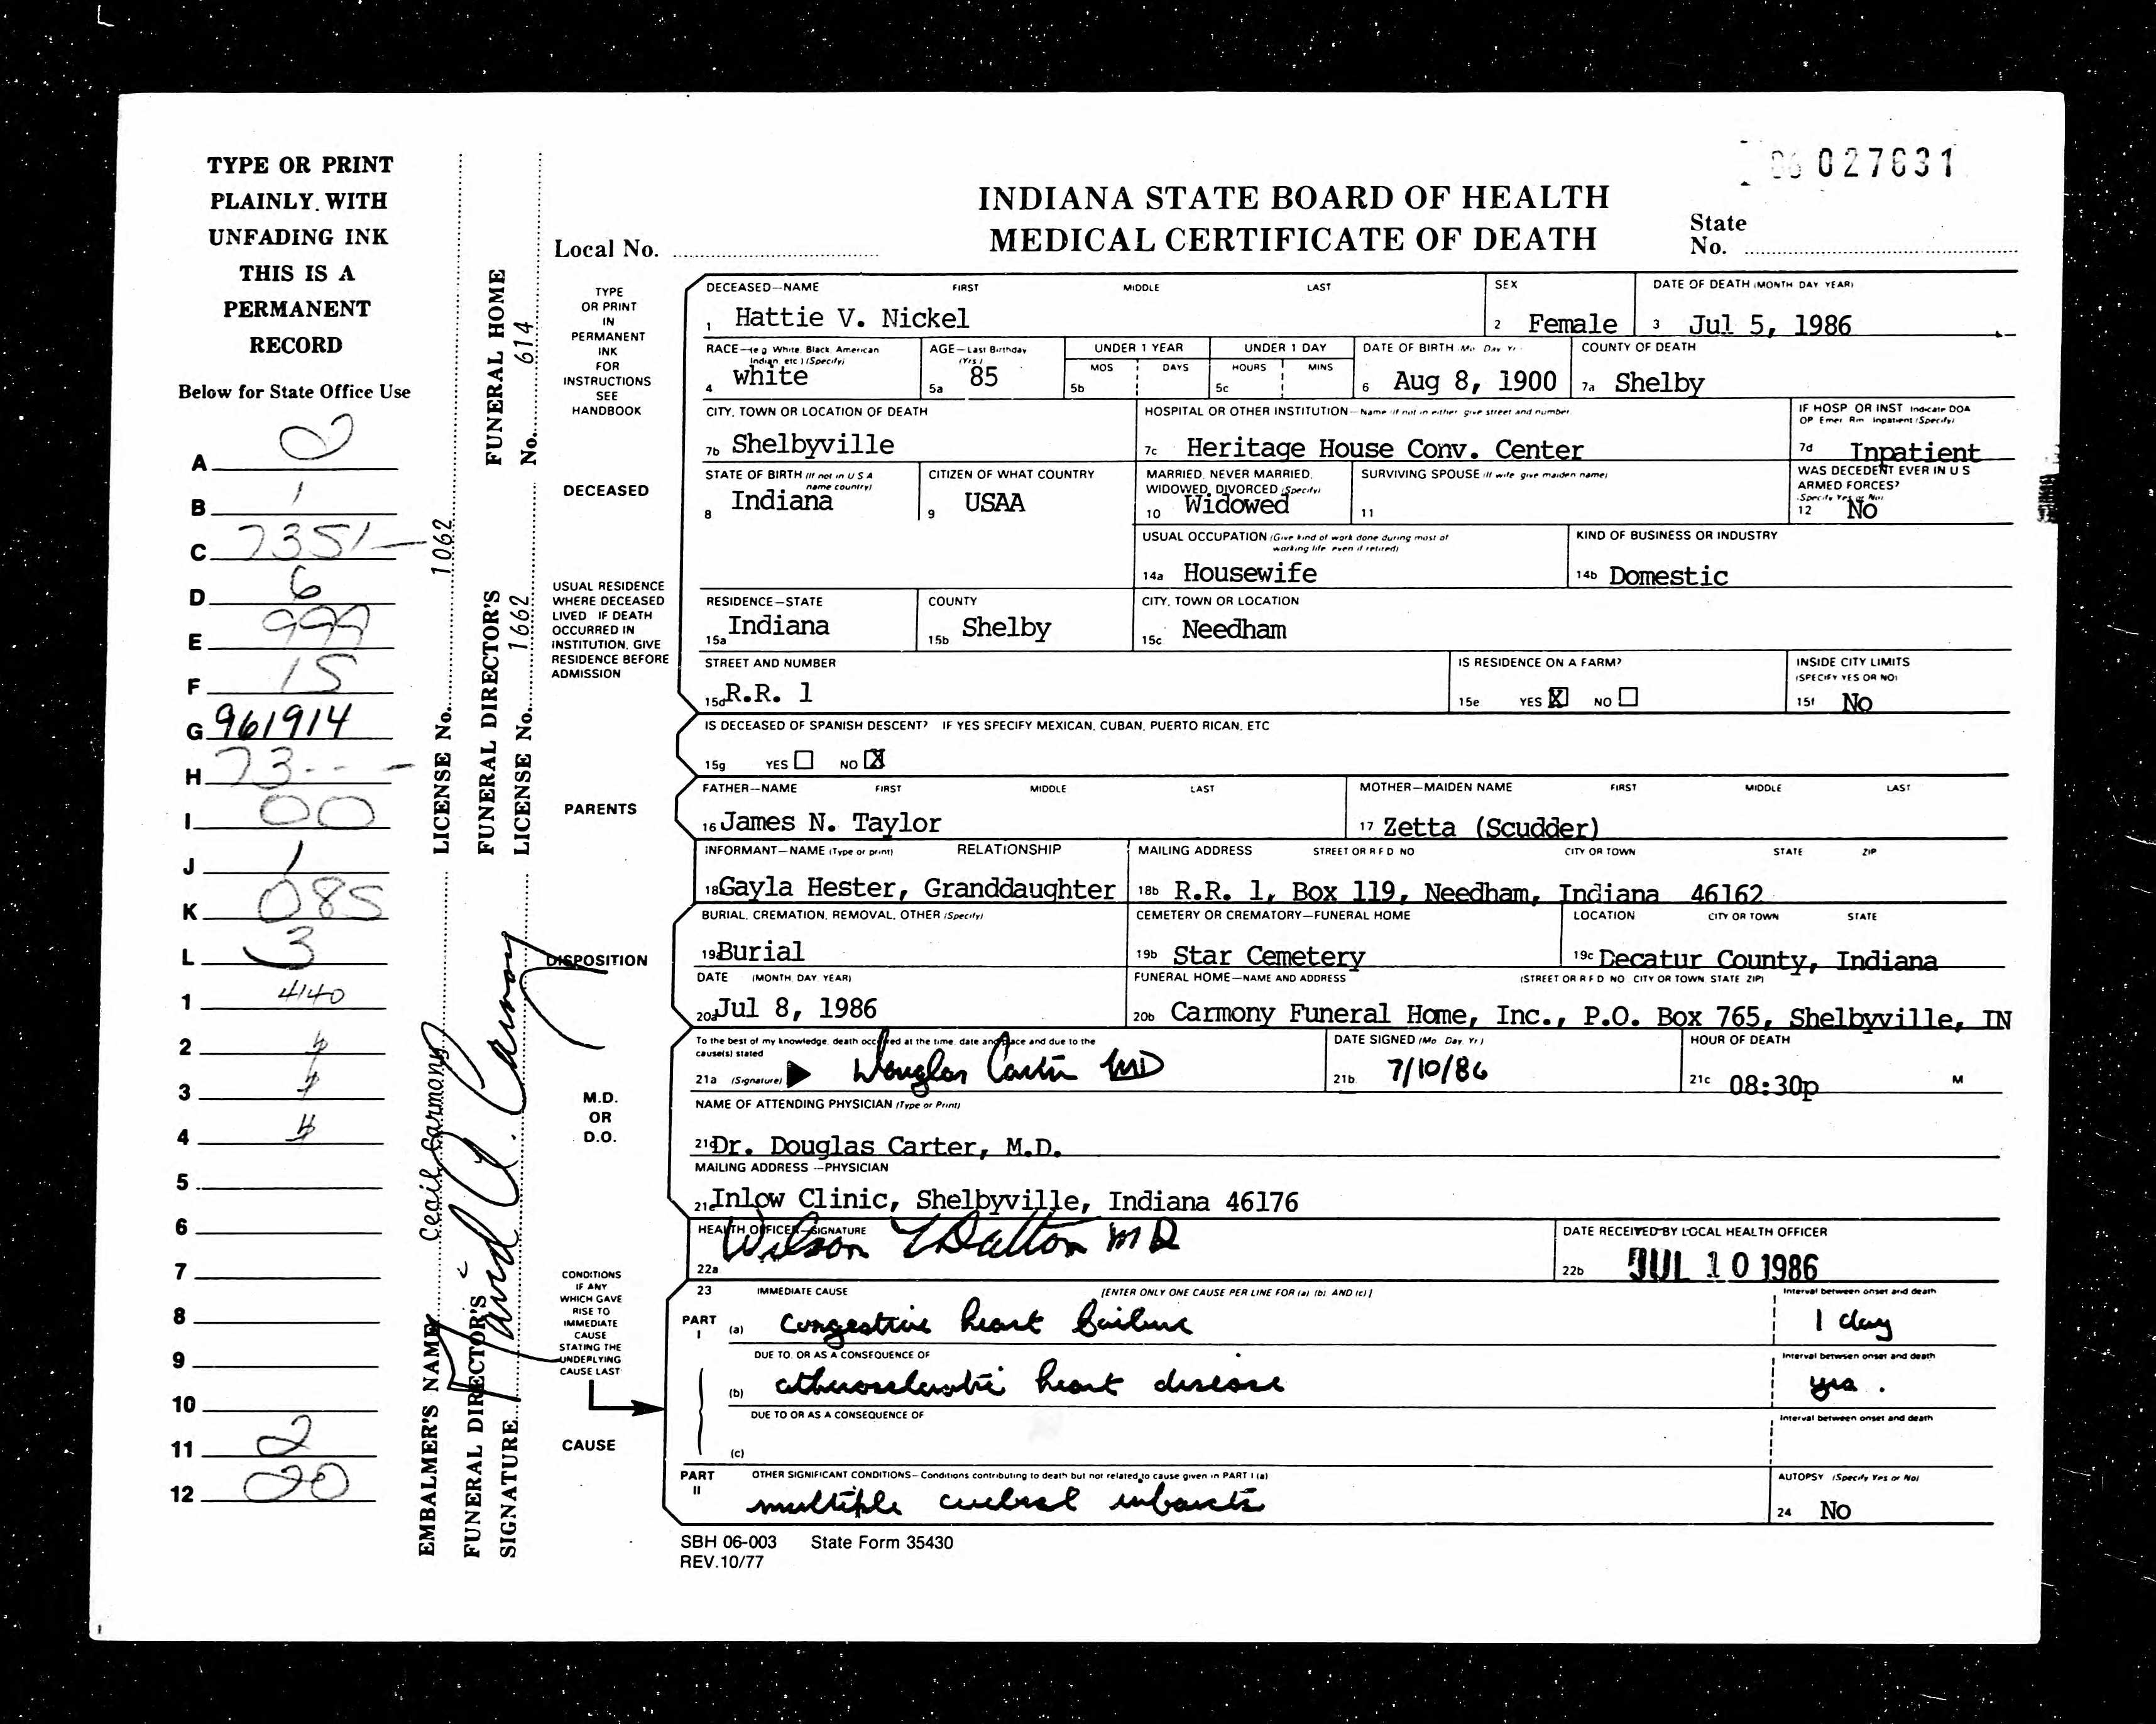 TYPE OR PRINT
PLAINLY WITH
UNFADING INK
THIS IS A
PERMANENT
RECORD
Below for State Office Use
A
B 1
C 7351-
D 6
E 999
F 15
G 961914
H 73---
I 00
J 1
K 085
L 3
1 4140
2
3
4
5
6
7
8
9
10
11 2
12 20
EMBALMER'S NAME Cecil Carmony LICENSE No. 1062
FUNERAL DIRECTOR'S
SIGNATURE David A. Carmony
FUNERAL DIRECTOR'S
LICENSE No. 1662
FUNERAL HOME
No. 614
027631
INDIANA STATE BOARD OF HEALTH
MEDICAL CERTIFICATE OF DEATH
Local No.
State
No.
TYPE
OR PRINT
IN
PERMANENT
INK
FOR
INSTRUCTIONS
SEE
HANDBOOK
DECEASED—NAME FIRST MIDDLE LAST
1 Hattie V. Nickel
SEX
2 Female
DATE OF DEATH (MONTH DAY YEAR)
3 Jul 5, 1986
RACE—(e g White, Black, American
Indian, etc ) (Specify)
4 white
AGE—Last Birthday
(Yrs )
5a 85
UNDER 1 YEAR
MOS DAYS
5b
UNDER 1 DAY
HOURS MINS
5c
DATE OF BIRTH (Mo Day Yr
6 Aug 8, 1900
COUNTY OF DEATH
7a Shelby
CITY, TOWN OR LOCATION OF DEATH
7b Shelbyville
HOSPITAL OR OTHER INSTITUTION—Name (if not in either give street and number
7c Heritage House Conv. Center
IF HOSP OR INST Indicate DOA
OP Emer Rm Inpatient (Specify)
7d Inpatient
DECEASED
STATE OF BIRTH (If not in U S A
name country)
8 Indiana
CITIZEN OF WHAT COUNTRY
9 USAA
MARRIED, NEVER MARRIED,
WIDOWED, DIVORCED (Specify)
10 Widowed
SURVIVING SPOUSE (If wife give maiden name)
11
WAS DECEDENT EVER IN U S
ARMED FORCES?
(Specify Yes or No)
12 No
USUAL OCCUPATION (Give kind of work done during most of
working life even if retired)
14a Housewife
KIND OF BUSINESS OR INDUSTRY
14b Domestic
USUAL RESIDENCE
WHERE DECEASED
LIVED IF DEATH
OCCURRED IN
INSTITUTION, GIVE
RESIDENCE BEFORE
ADMISSION
RESIDENCE—STATE
15a Indiana
COUNTY
15b Shelby
CITY, TOWN OR LOCATION
15c Needham
STREET AND NUMBER
15d R.R. 1
IS RESIDENCE ON A FARM?
15e YES X NO
INSIDE CITY LIMITS
(SPECIFY YES OR NO)
15f No
IS DECEASED OF SPANISH DESCENT? IF YES SPECIFY MEXICAN, CUBAN, PUERTO RICAN, ETC
15g YES NO X
PARENTS
FATHER—NAME FIRST MIDDLE LAST
16 James N. Taylor
MOTHER—MAIDEN NAME FIRST MIDDLE LAST
17 Zetta (Scudder)
INFORMANT—NAME (Type or print) RELATIONSHIP
18a Gayla Hester, Granddaughter
MAILING ADDRESS STREET OR R F D NO CITY OR TOWN STATE ZIP
18b R.R. 1, Box 119, Needham, Indiana 46162
DISPOSITION
BURIAL, CREMATION, REMOVAL, OTHER (Specify)
19a Burial
CEMETERY OR CREMATORY—FUNERAL HOME
19b Star Cemetery
LOCATION CITY OR TOWN STATE
19c Decatur County, Indiana
DATE (MONTH, DAY YEAR)
20a Jul 8, 1986
FUNERAL HOME—NAME AND ADDRESS (STREET OR R F D NO CITY OR TOWN STATE ZIP)
20b Carmony Funeral Home, Inc., P.O. Box 765, Shelbyville, IN
M.D.
OR
D.O.
To the best of my knowledge, death occurred at the time, date and place and due to the
cause(s) stated
21a (Signature) Douglas Carter MD
DATE SIGNED (Mo Day, Yr )
21b 7/10/86
HOUR OF DEATH
21c 08:30p M
NAME OF ATTENDING PHYSICIAN (Type or Print)
21d Dr. Douglas Carter, M.D.
MAILING ADDRESS—PHYSICIAN
21e Inlow Clinic, Shelbyville, Indiana 46176
HEALTH OFFICER—SIGNATURE
22a Wilson L Dalton MD
DATE RECEIVED BY LOCAL HEALTH OFFICER
22b JUL 10 1986
CONDITIONS
IF ANY
WHICH GAVE
RISE TO
IMMEDIATE
CAUSE
STATING THE
UNDERLYING
CAUSE LAST
CAUSE
23 IMMEDIATE CAUSE [ENTER ONLY ONE CAUSE PER LINE FOR (a) (b) AND (c)]
PART I (a) Congestive heart failure
Interval between onset and death
1 day
DUE TO, OR AS A CONSEQUENCE OF
(b) atherosclerotic heart disease
Interval between onset and death
yrs.
DUE TO OR AS A CONSEQUENCE OF
(c)
Interval between onset and death
PART II OTHER SIGNIFICANT CONDITIONS—Conditions contributing to death but not related to cause given in PART I (a)
multiple cerebral infarcts
AUTOPSY (Specify Yes or No)
24 No
SBH 06-003 State Form 35430
REV.10/77